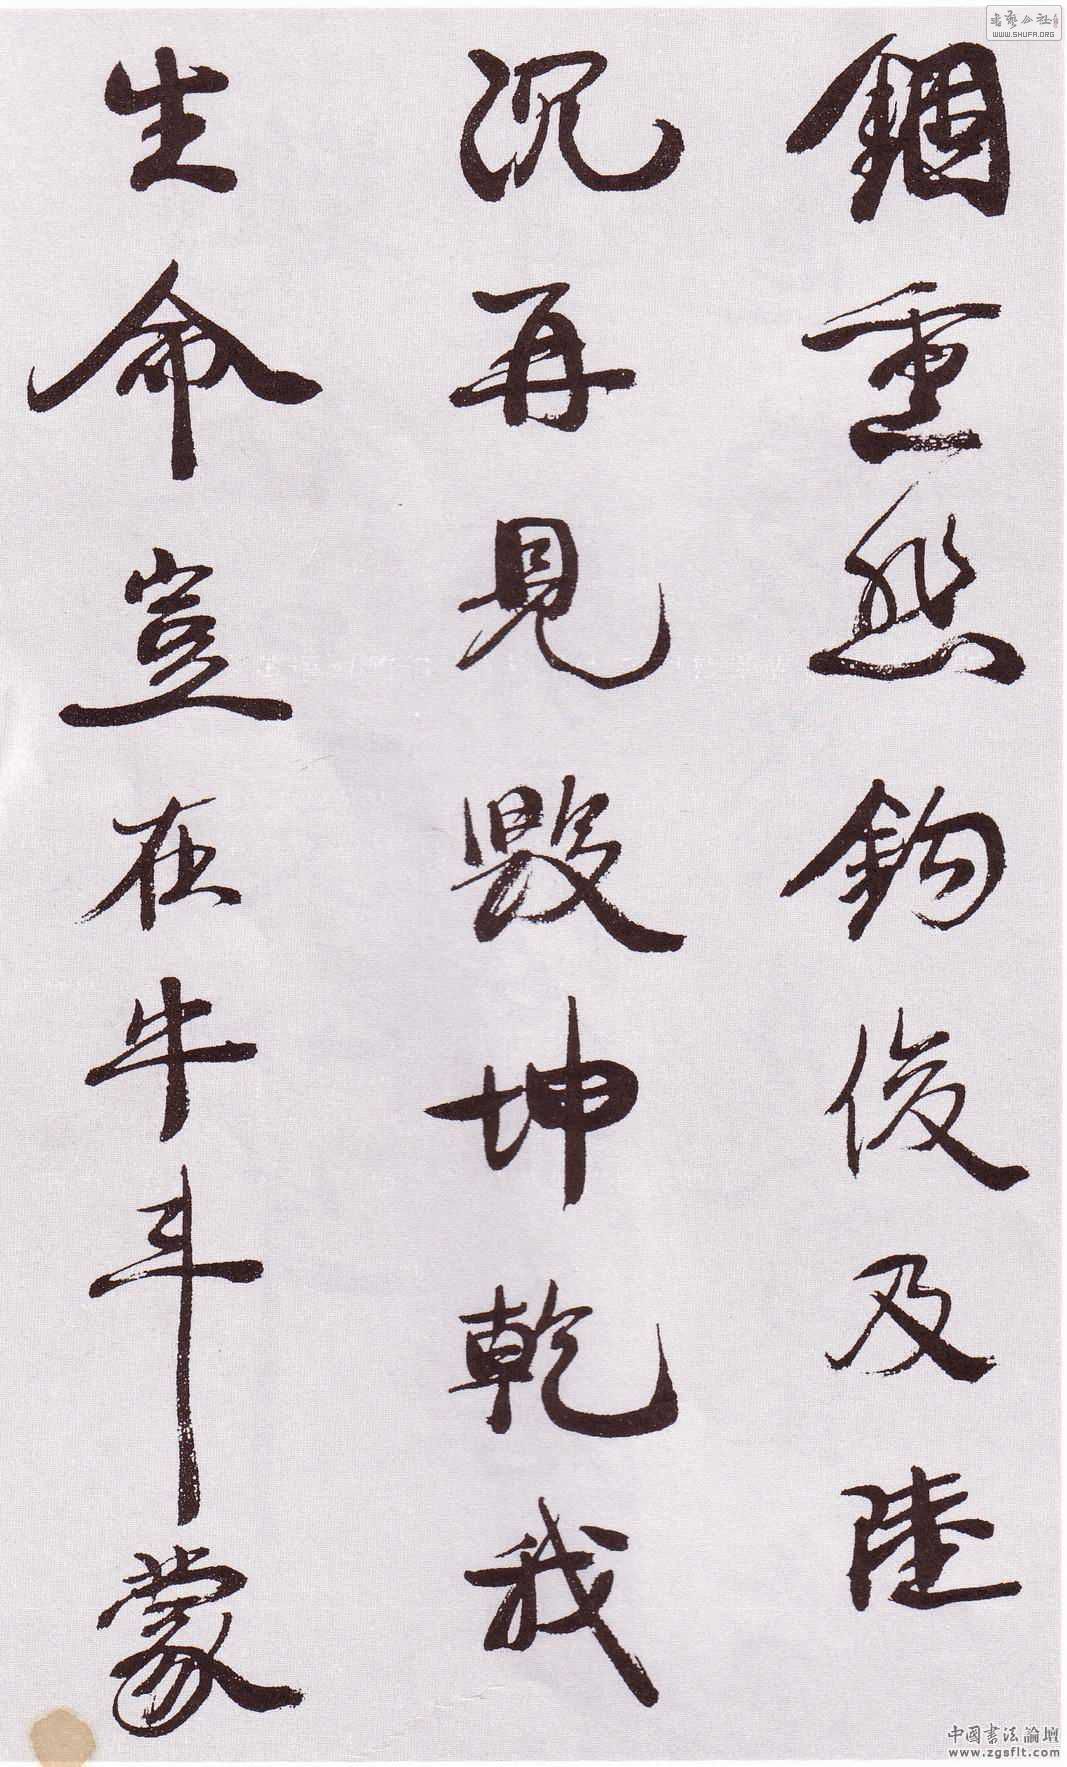 錮重然鉤俊及陸
沉再見毀坤乾我
生命豈在牛斗蒙
書藝公社
WWW.SHUFA.ORG
中國書法論壇
www.zgsflt.com